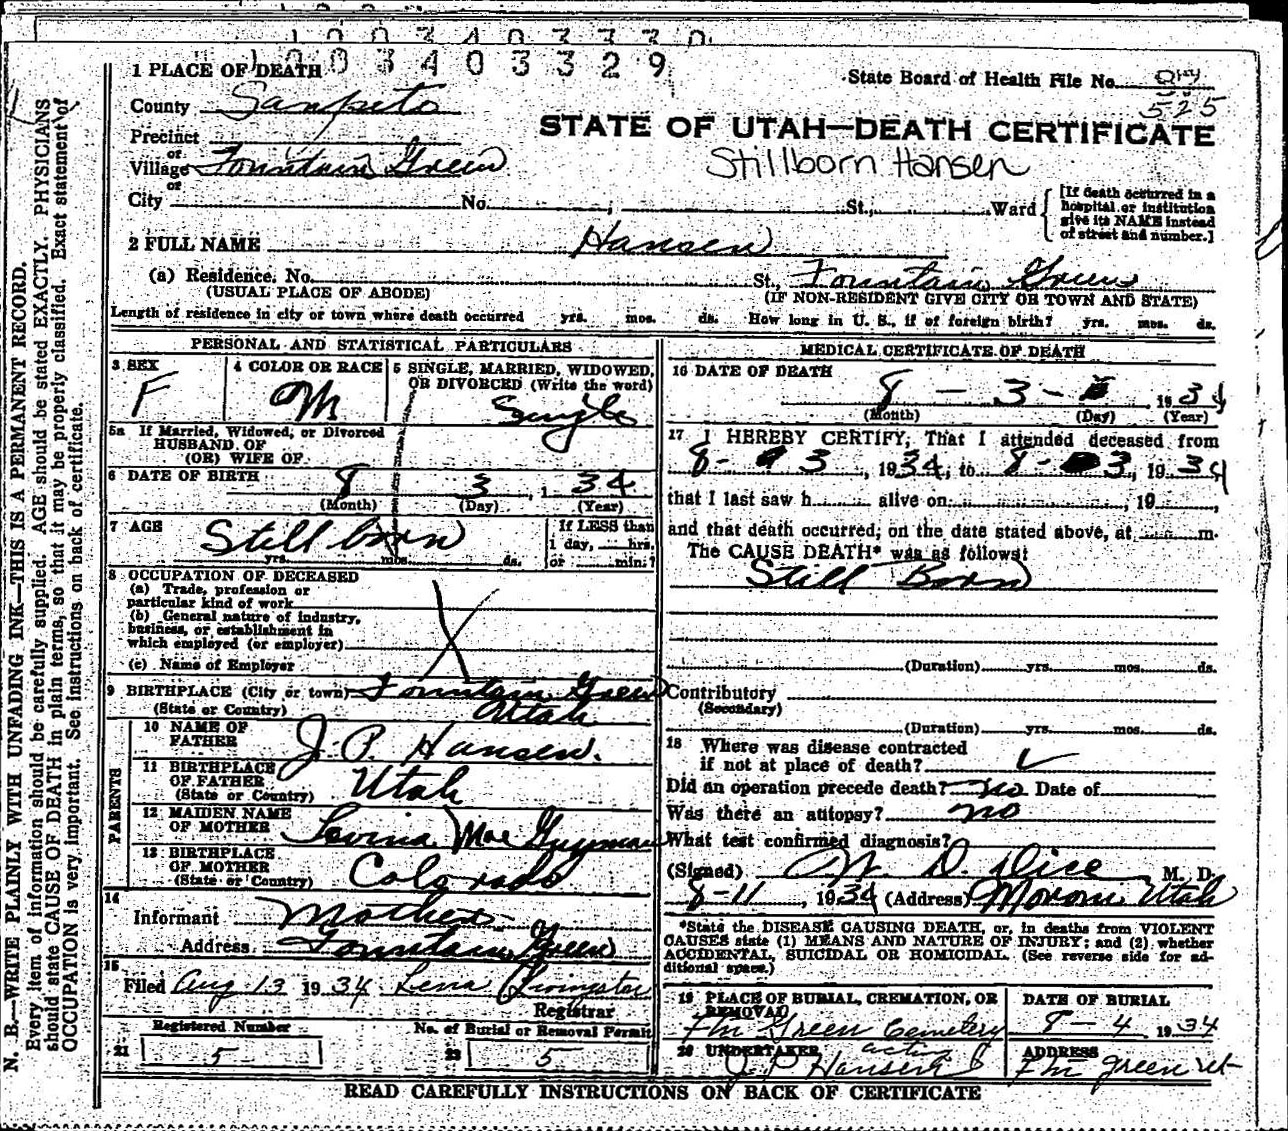 1003403329
1 PLACE OF DEATH
State Board of Health File No.
525
County Sanpete
STATE OF UTAH—DEATH CERTIFICATE
Precinct
or
Stillborn Hansen
Village Fountain Green
or
City No. ; St., Ward
[If death occurred in a
hospital or institution
give its NAME instead
of street and number.]
2 FULL NAME Hansen
(a) Residence. No. St., Fountain Green
(USUAL PLACE OF ABODE) (IF NON-RESIDENT GIVE CITY OR TOWN AND STATE)
Length of residence in city or town where death occurred yrs. mos. ds. How long in U. S., if of foreign birth? yrs. mos. ds.
PERSONAL AND STATISTICAL PARTICULARS
3 SEX F
4 COLOR OR RACE
5 SINGLE, MARRIED, WIDOWED,
OR DIVORCED (Write the word)
Single
5a If Married, Widowed, or Divorced
HUSBAND OF
(OR) WIFE OF
6 DATE OF BIRTH 8 3, 1 34
(Month) (Day) (Year)
7 AGE Still born
yrs. mos. ds.
If LESS than
1 day, hrs.
or min.?
8 OCCUPATION OF DECEASED
(a) Trade, profession or
particular kind of work
(b) General nature of industry,
business, or establishment in
which employed (or employer)
(c) Name of Employer
9 BIRTHPLACE (City or town) Fountain Green
(State or Country) Utah
PARENTS
10 NAME OF
FATHER J. P. Hansen.
11 BIRTHPLACE
OF FATHER
(State or Country) Utah
12 MAIDEN NAME
OF MOTHER Lovina Mae Guyman
13 BIRTHPLACE
OF MOTHER
(State or Country) Colorado
14
Informant Mother
Address Fountain Green
15
Filed Aug 13 1934 Lena Livingston
Registrar
Registered Number No. of Burial or Removal Permit
21 5 22 5
MEDICAL CERTIFICATE OF DEATH
16 DATE OF DEATH
8 - 3 - 1934
(Month) (Day) (Year)
17 I HEREBY CERTIFY, That I attended deceased from
8- 3, 1934, to 8- 3, 1934
that I last saw h alive on , 19 ,
and that death occurred, on the date stated above, at m.
The CAUSE DEATH* was as follows:
Still Born
(Duration) yrs. mos. ds.
Contributory
(Secondary)
(Duration) yrs. mos. ds.
18 Where was disease contracted
if not at place of death?
Did an operation precede death? no Date of
Was there an autopsy? no
What test confirmed diagnosis?
(Signed) W. D. Dice M. D.
8-11, 1934 (Address) Moroni Utah
*State the DISEASE CAUSING DEATH, or, in deaths from VIOLENT
CAUSES state (1) MEANS AND NATURE OF INJURY; and (2) whether
ACCIDENTAL, SUICIDAL OR HOMICIDAL. (See reverse side for ad-
ditional space.)
19 PLACE OF BURIAL, CREMATION, OR
REMOVAL
Ftn Green Cemetery
DATE OF BURIAL
8-4 1934
20 UNDERTAKER acting
J P Hansen
ADDRESS
Ftn Green Ut
READ CAREFULLY INSTRUCTIONS ON BACK OF CERTIFICATE
N. B.—WRITE PLAINLY WITH UNFADING INK—THIS IS A PERMANENT RECORD.
Every item of information should be carefully supplied. AGE should be stated EXACTLY. PHYSICIANS
should state CAUSE OF DEATH in plain terms, so that it may be properly classified. Exact statement of
OCCUPATION is very important. See instructions on back of certificate.